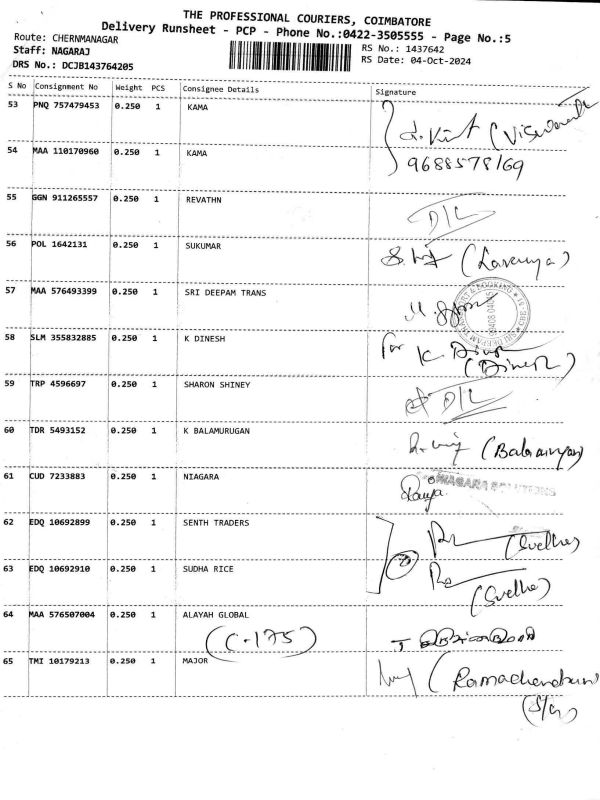 THE PROFESSIONAL COURIERS, COIMBATORE
Delivery Runsheet - PCP - Phone No.:0422-3505555 - Page No.:5
Route: CHERNMANAGAR
RS No.: 1437642
Staff: NAGARAJ
RS Date: 04-Oct-2024
DRS No.: DCJB143764205
S No Consignment No Weight PCS Consignee Details Signature
53 PNQ 757479453 0.250 1 KAMA
54 MAA 110170960 0.250 1 KAMA 9688578169
55 GGN 911265557 0.250 1 REVATHN D/L
56 POL 1642131 0.250 1 SUKUMAR (Lavanya)
57 MAA 576493399 0.250 1 SRI DEEPAM TRANS
58 SLM 355832885 0.250 1 K DINESH For K. Dinesh
(Dinesh)
59 TRP 4596697 0.250 1 SHARON SHINEY D/L
60 TDR 5493152 0.250 1 K BALAMURUGAN
61 CUD 7233883 0.250 1 NIAGARA NIAGARA SOLUTIONS
62 EDQ 10692899 0.250 1 SENTH TRADERS
63 EDQ 10692910 0.250 1 SUDHA RICE
64 MAA 576507004 0.250 1 ALAYAH GLOBAL
(C-175)
65 TMI 10179213 0.250 1 MAJOR